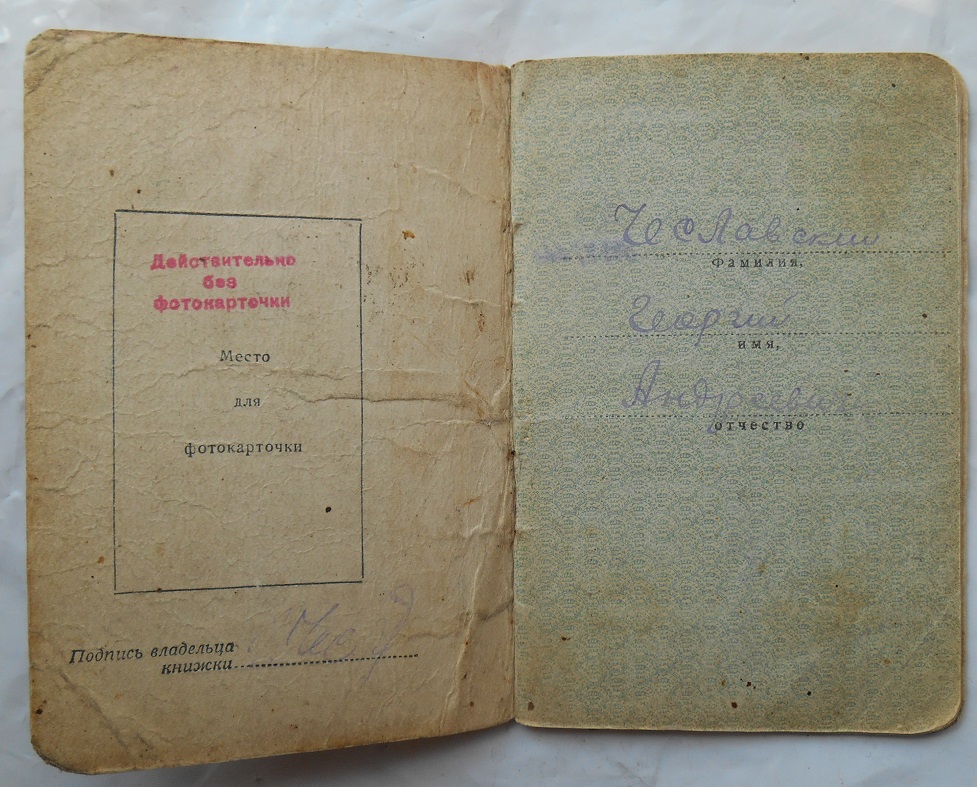 Действительно
без
фотокарточки
Место
для
фотокарточки
Подпись владельца
книжки
Чеславский
фамилия,
Георгий
имя,
Андреевич
отчество